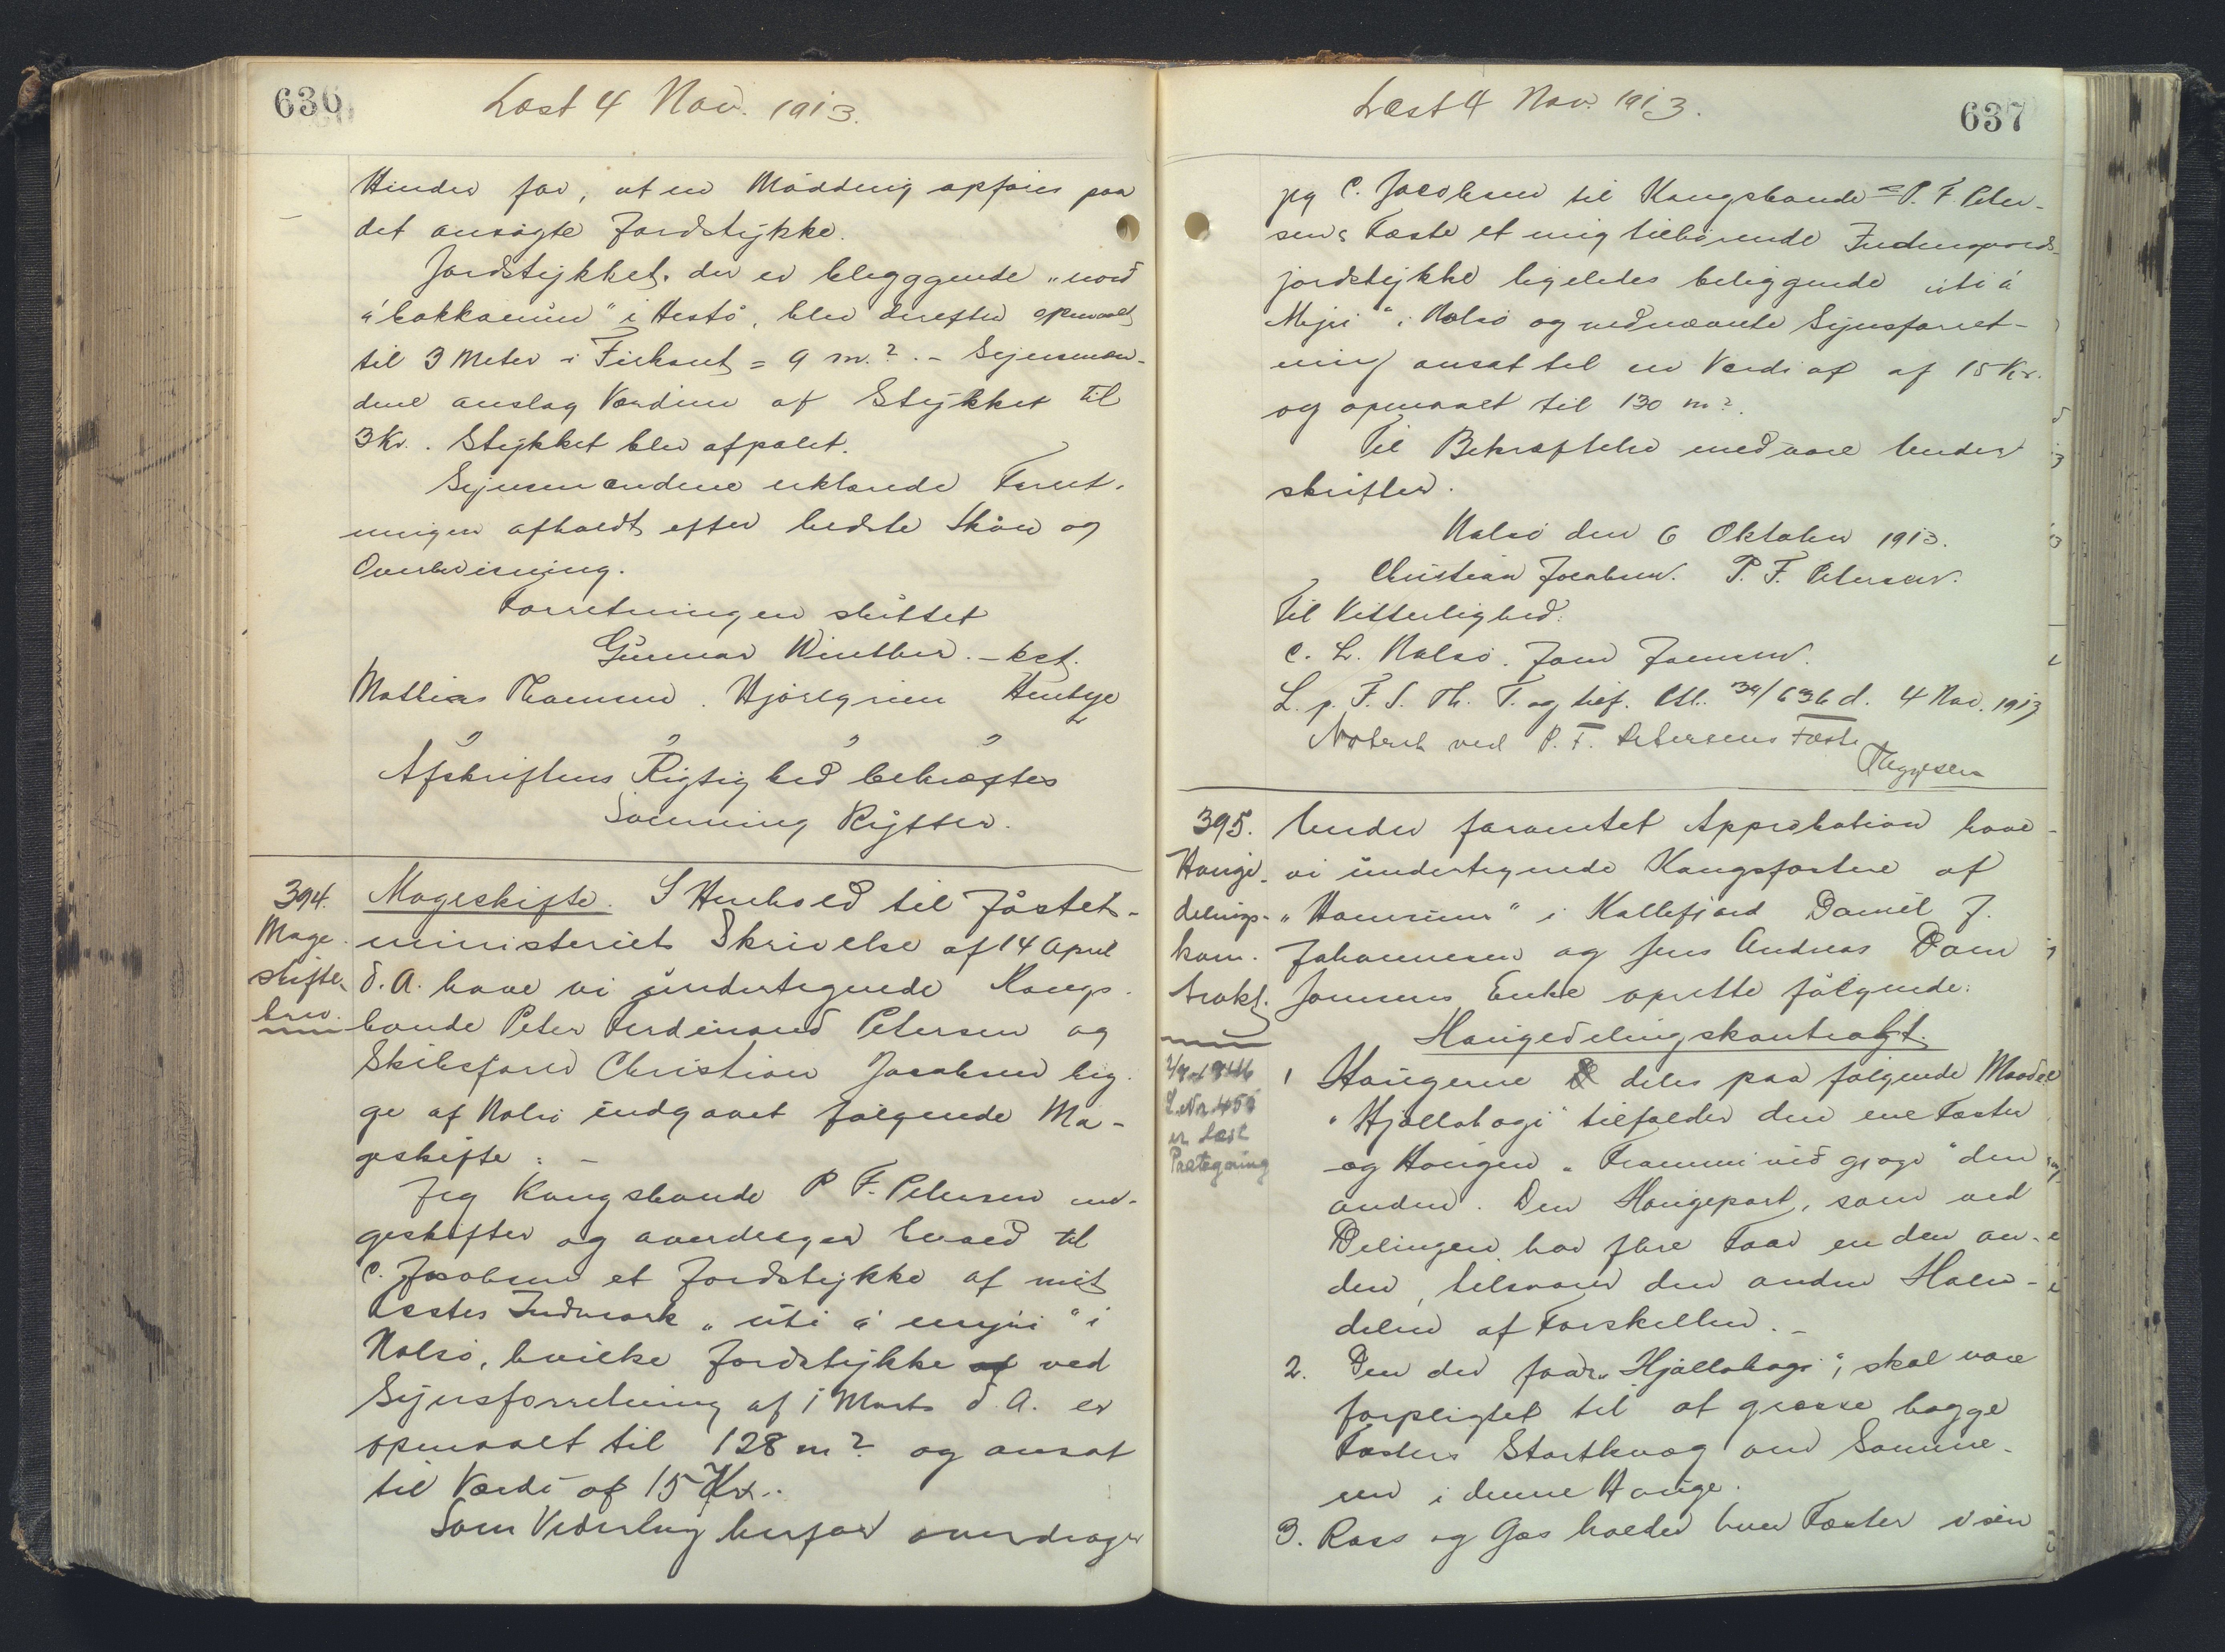 636
Læst 4 Nov. 1913.
Hinder for, at en Mødding opføres paa
det ansøgte Jordstykke.
Jordstykket, der er beligggende „norð
á bakkanum" i Hestø, blev derefter opmaalt
til 3 Meter i Firkant = 9 m.² . - Synsmæn-
dene anslog Værdien af Stykket til
3 Kr. . Stykket blev afpælet.
Synsmændene erklærede Forret-
ningen afholdt efter bedste Skøn og
Overbevisning.
Forretningen sluttet
Gunnar Winther. - kst.
Mathias Thomsen. Hjørlgrim Hentze
Afskriftens Rigtighed bekræftes
Sonning Rytter.
394.
Mage-
skifte-
brev.
Mageskifte. I Henhold til Justits-
ministeriets Skrivelse af 14 April
d. A. have vi undertegnede Kongs-
bonde Peter Ferdinand Petersen og
Skibsfører Christian Jacobsen beg-
ge af Nolsø indgaaet følgende Ma-
geskifte: -
Jeg Kongsbonde P. F. Petersen ma-
geskifter og overdrager herved til
C. Jacobsen et Jordstykke af mit
Fæstes Indmark „úti á mýri" i
Nolsø, hvilke Jordstykke af ved
Synsforretning af 1 Marts d. A. er
opmaalt til 128 m² og ansat
til Værdi af 15 Kr..
Som Vederlag herfor overdrager
Læst 4 Nov. 1913.
637
jeg C. Jacobsen til Kongsbonde P. F. Peter-
sens Fæste et mig tilhørende Indengaards-
jordstykke ligeledes beliggende „úti á
Mýri" i Nolsø og ved nævnte Synsforret-
ning ansat til en Værdi af af 15 Kr.
og opmaalt til 130 m².
Til Bekræftelse med vore Under
skrifter.
Nolsø den 6 Oktober 1913.
Christian Jacobsen. P. F. Petersen.
Til Vitterlighed:
C. L. Nolsø. Joen Joensen.
L. p. F. S. Th. T. og tilf. Ctl. 39/636 d. 4 Nov. 1913
Noteret ved P. F. Petersens Fæste
395.
Hauge-
delings-
kon-
trakt.
Under foramtet Approbation have
vi undertegnede Kongsfæstere af
„Homrum" i Kollefjord Daniel J.
Johannesen og Jens Andreas Dom
Joensens Enke oprette følgende:
Haugedelingskontrakt.
L. Nr. 455
er Læst
Paategning
1 Haugerne deles paa følgende Maade:
„Hjallahagi" tilfalder den ene Fæster
og Haugen „Frammi við gjógv" den
anden. Den Haugepart, som ved
Delingen har flere Faar en den an-
den, tilsvarer den anden Halv-
delen af Forskellen. -
2. Den der faar „Hjallahagi", skal være
forpligtet til at græsse begge
Fæsters Stortkvæg om Somme-
ren i denne Hauge.
3. Ross og Gæs holder hver Fæster i sin